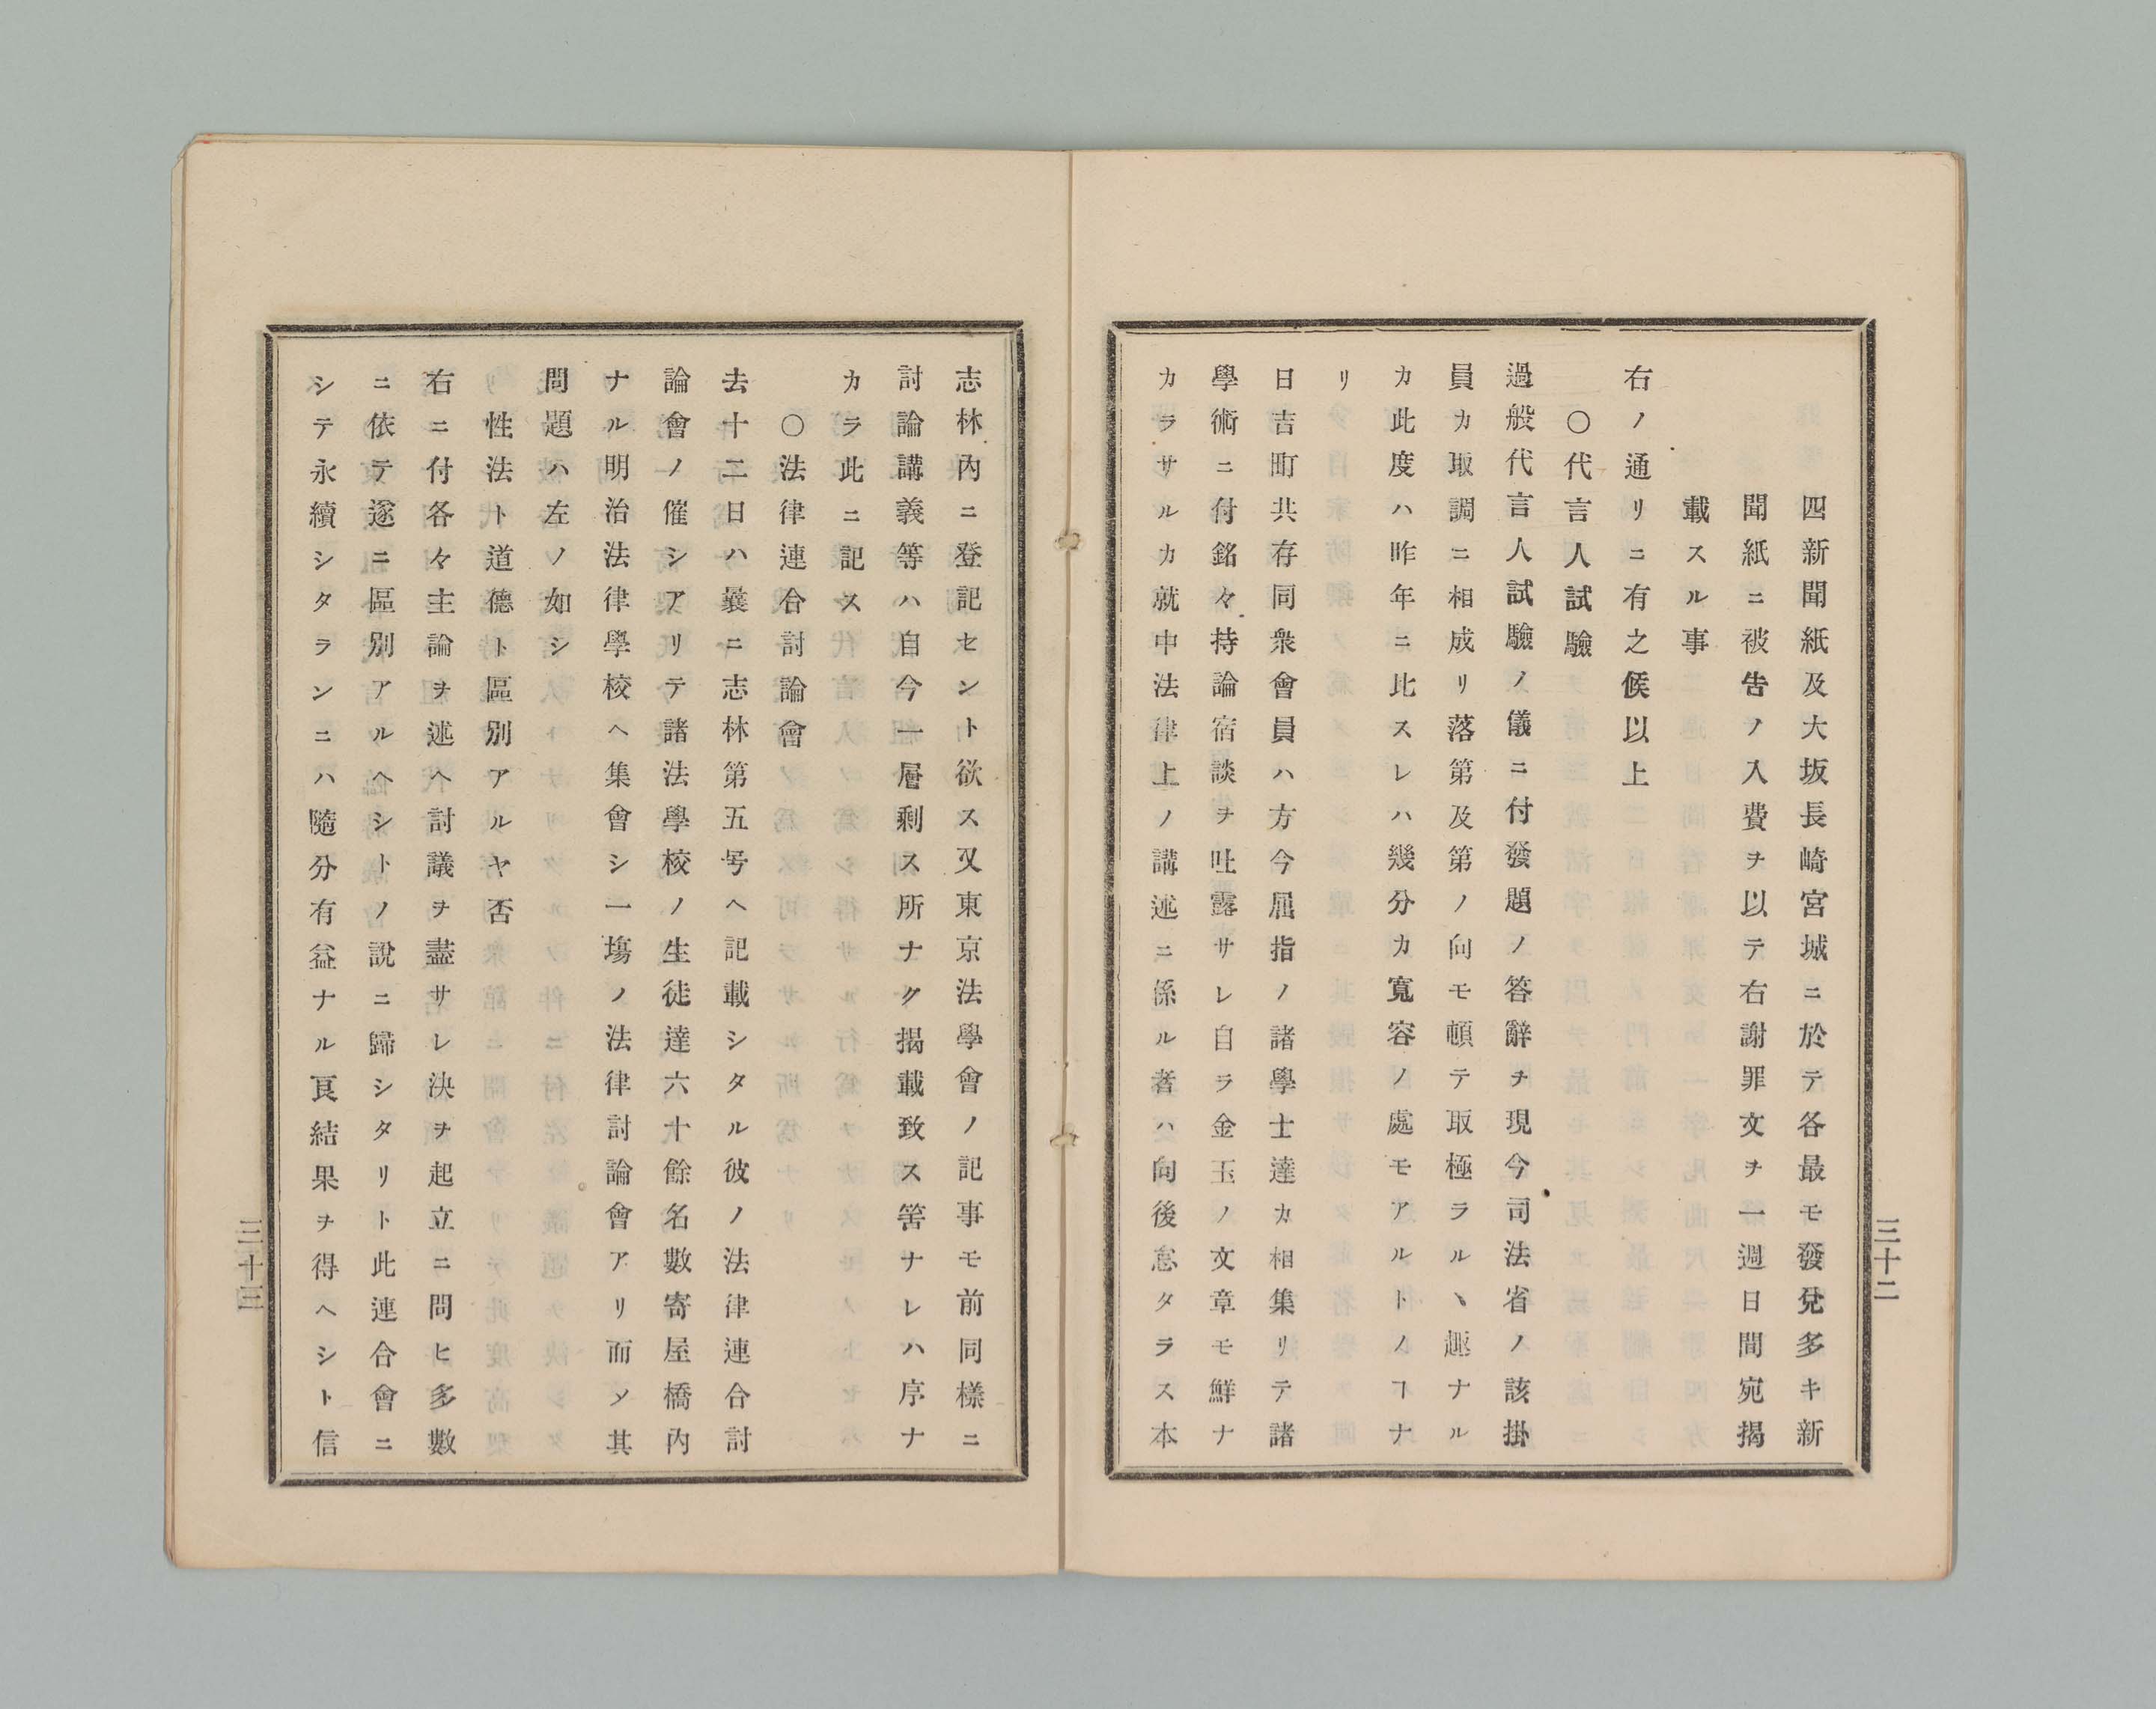 四新聞紙及大坂長崎宮城ニ於テ各最モ發兌多キ新
聞紙ニ被告ノ入費ヲ以テ右謝罪文ヲ一週日間宛揭
載スル事
右ノ通リニ有之候以上
〇代言人試驗
過般代言人試驗ノ儀ニ付發題ノ答辭ヲ現今司法省ノ該掛
員カ取調ニ相成リ落第及第ノ向モ頓テ取極ラルヽ趣ナル
カ此度ハ昨年ニ比スレハ幾分カ寬容ノ處モアルトノヿナ
リ
日吉町共存同衆會員ハ方今屈指ノ諸學士達カ相集リテ諸
學術ニ付銘々持論宿談ヲ吐露サレ自ラ金玉ノ文章モ鮮ナ
カラサルカ就中法律上ノ講述ニ係ル者ハ向後怠タラス本
三十二
志林內ニ登記セント欲ス又東京法學會ノ記事モ前同樣ニ
討論講義等ハ自今一層剩ス所ナク揭載致ス筈ナレハ序ナ
カラ此ニ記ス
〇法律連合討論會
去十二日ハ曩ニ志林第五号ヘ記載シタル彼ノ法律連合討
論會ノ催シアリテ諸法學校ノ生徒達六十餘名數寄屋橋內
ナル明治法律學校ヘ集會シ一塲ノ法律討論會アリ而メ其
問題ハ左ノ如シ
性法ト道德ト區別アルヤ否
右ニ付各々主論ヲ述ヘ討議ヲ盡サレ決ヲ起立ニ問ヒ多數
ニ依テ遂ニ區別アルヘシトノ說ニ歸シタリト此連合會ニ
シテ永續シタランニハ隨分有益ナル良結果ヲ得ヘシト信
三十三